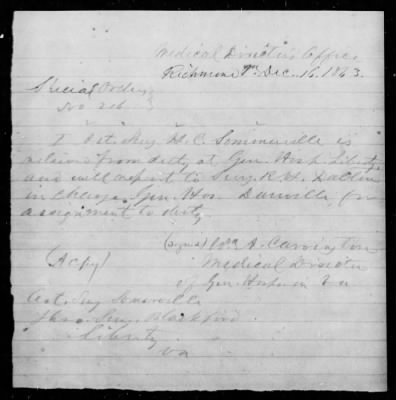 Medical Director's Office
Richmond Va Dec. 16. 1863.
Special Orders
No 216
I Act. Surg H. C. Sommerville is
relieved from duty at Gen. Hosp. Liberty
and will report to Surg. R. H. Dalton
in Charge Gen. Hos. Danville for
assignment to duty
(Signed) Wm A. Carrington
(A Cpy) Medical Director
of Gen. Hosp. in Va
Act. Surg Somerville
Surg. Blackford
Liberty
Va